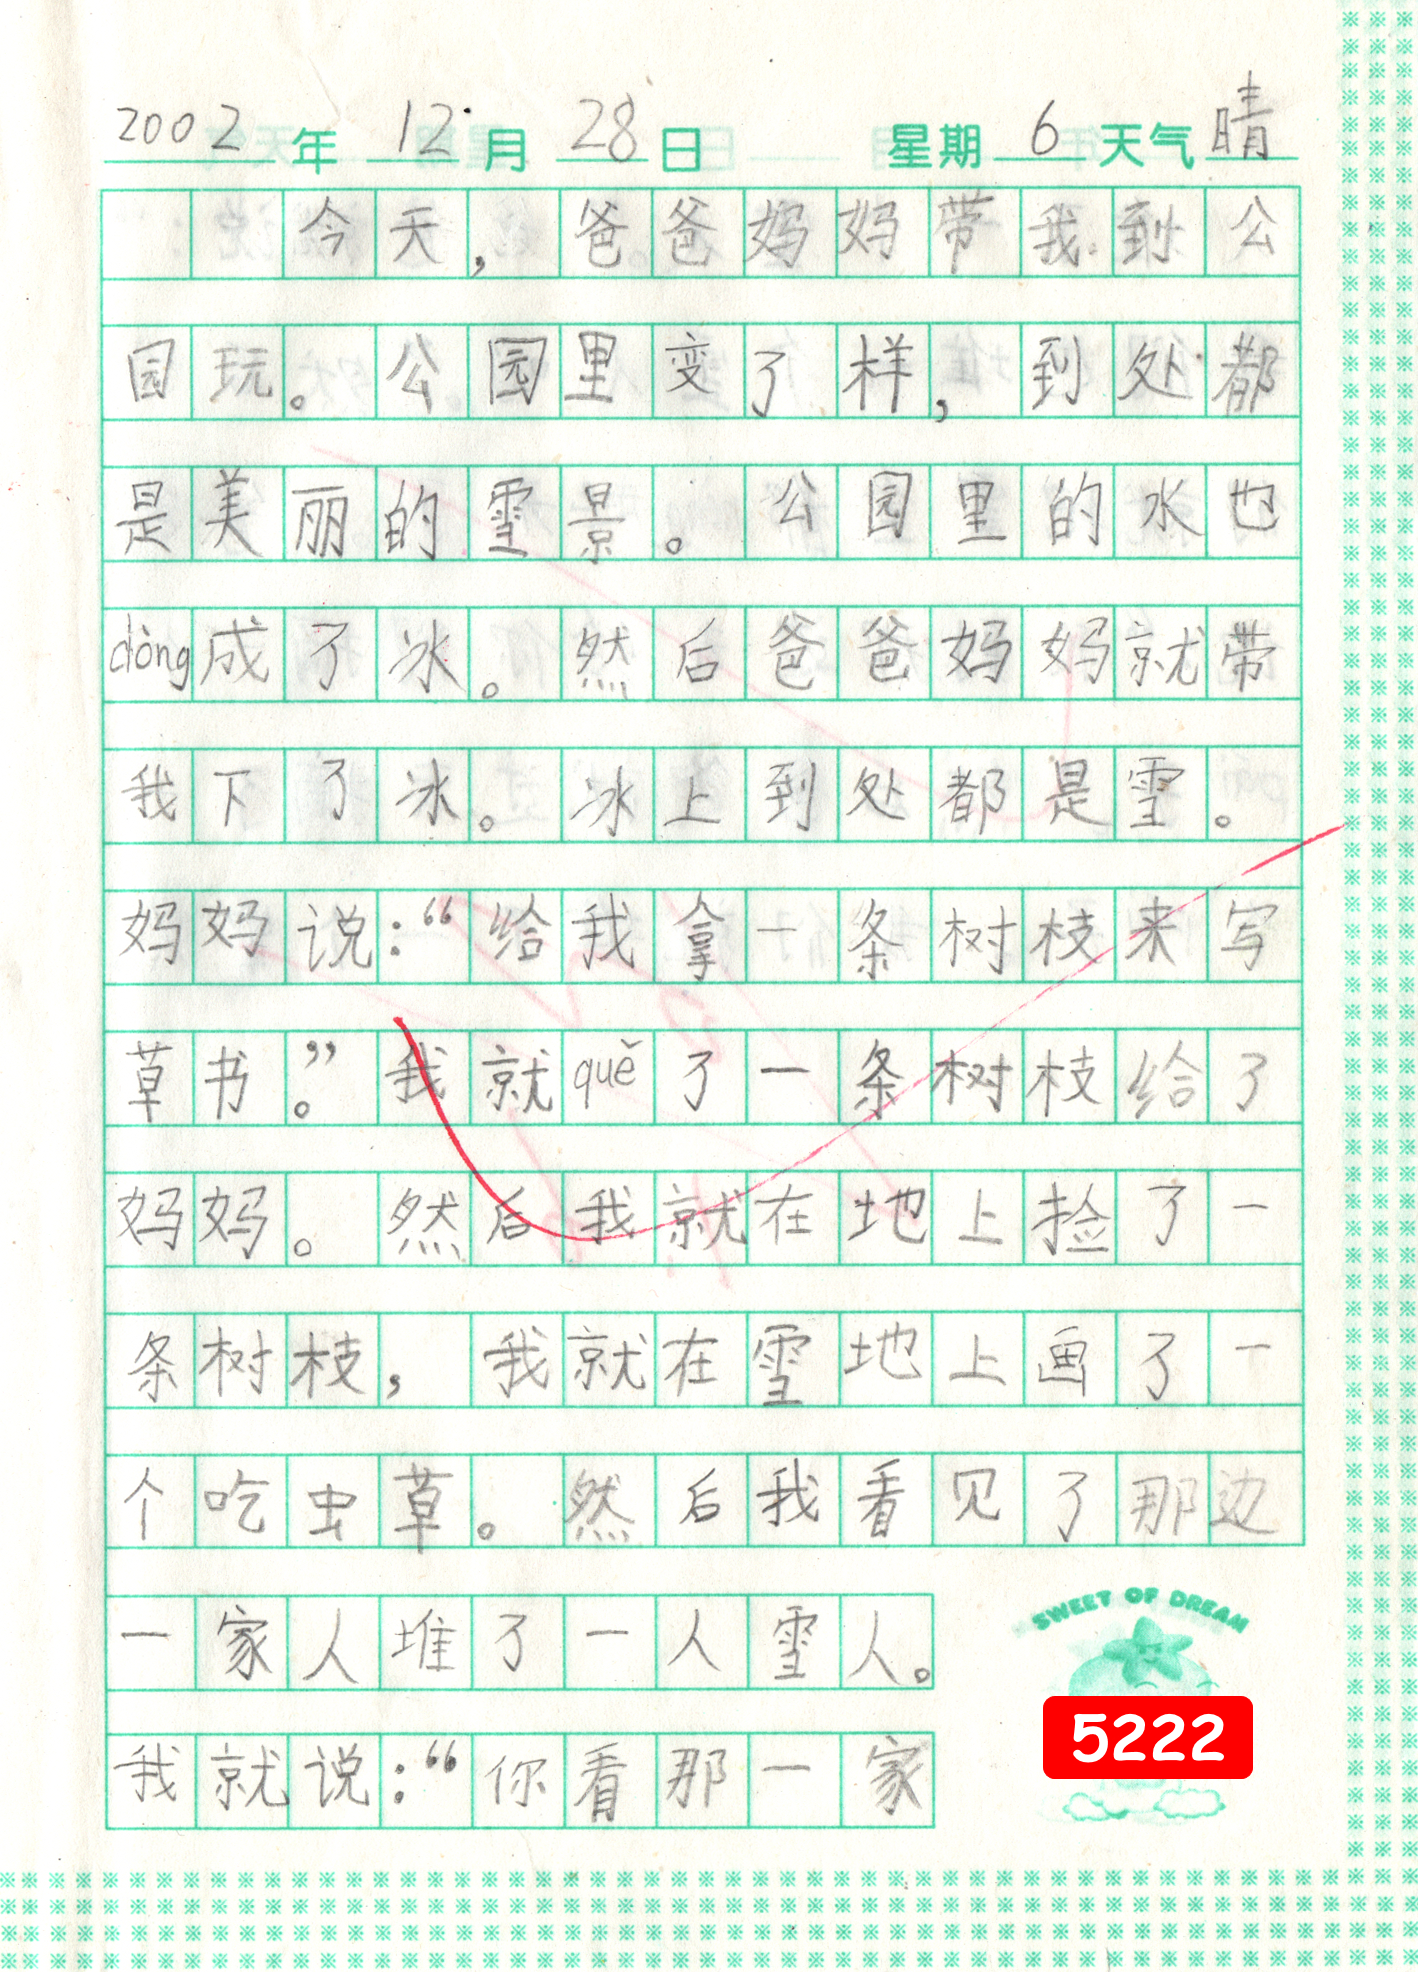 2002年 12月 28日 星期6 天气晴
今天，爸爸妈妈带我到公
园玩。公园里变了样，到处都
是美丽的雪景。公园里的水也
dòng成了冰。然后爸爸妈妈就带
我下了冰。冰上到处都是雪。
妈妈说：“给我拿一条树枝来写
草书。”我就quě了一条树枝给了
妈妈。然后我就在地上捡了一
条树枝，我就在雪地上画了一
个吃虫草。然后我看见了那边
一家人堆了一人雪人。
我就说：“你看那一家
SWEET OF DREAM
5222